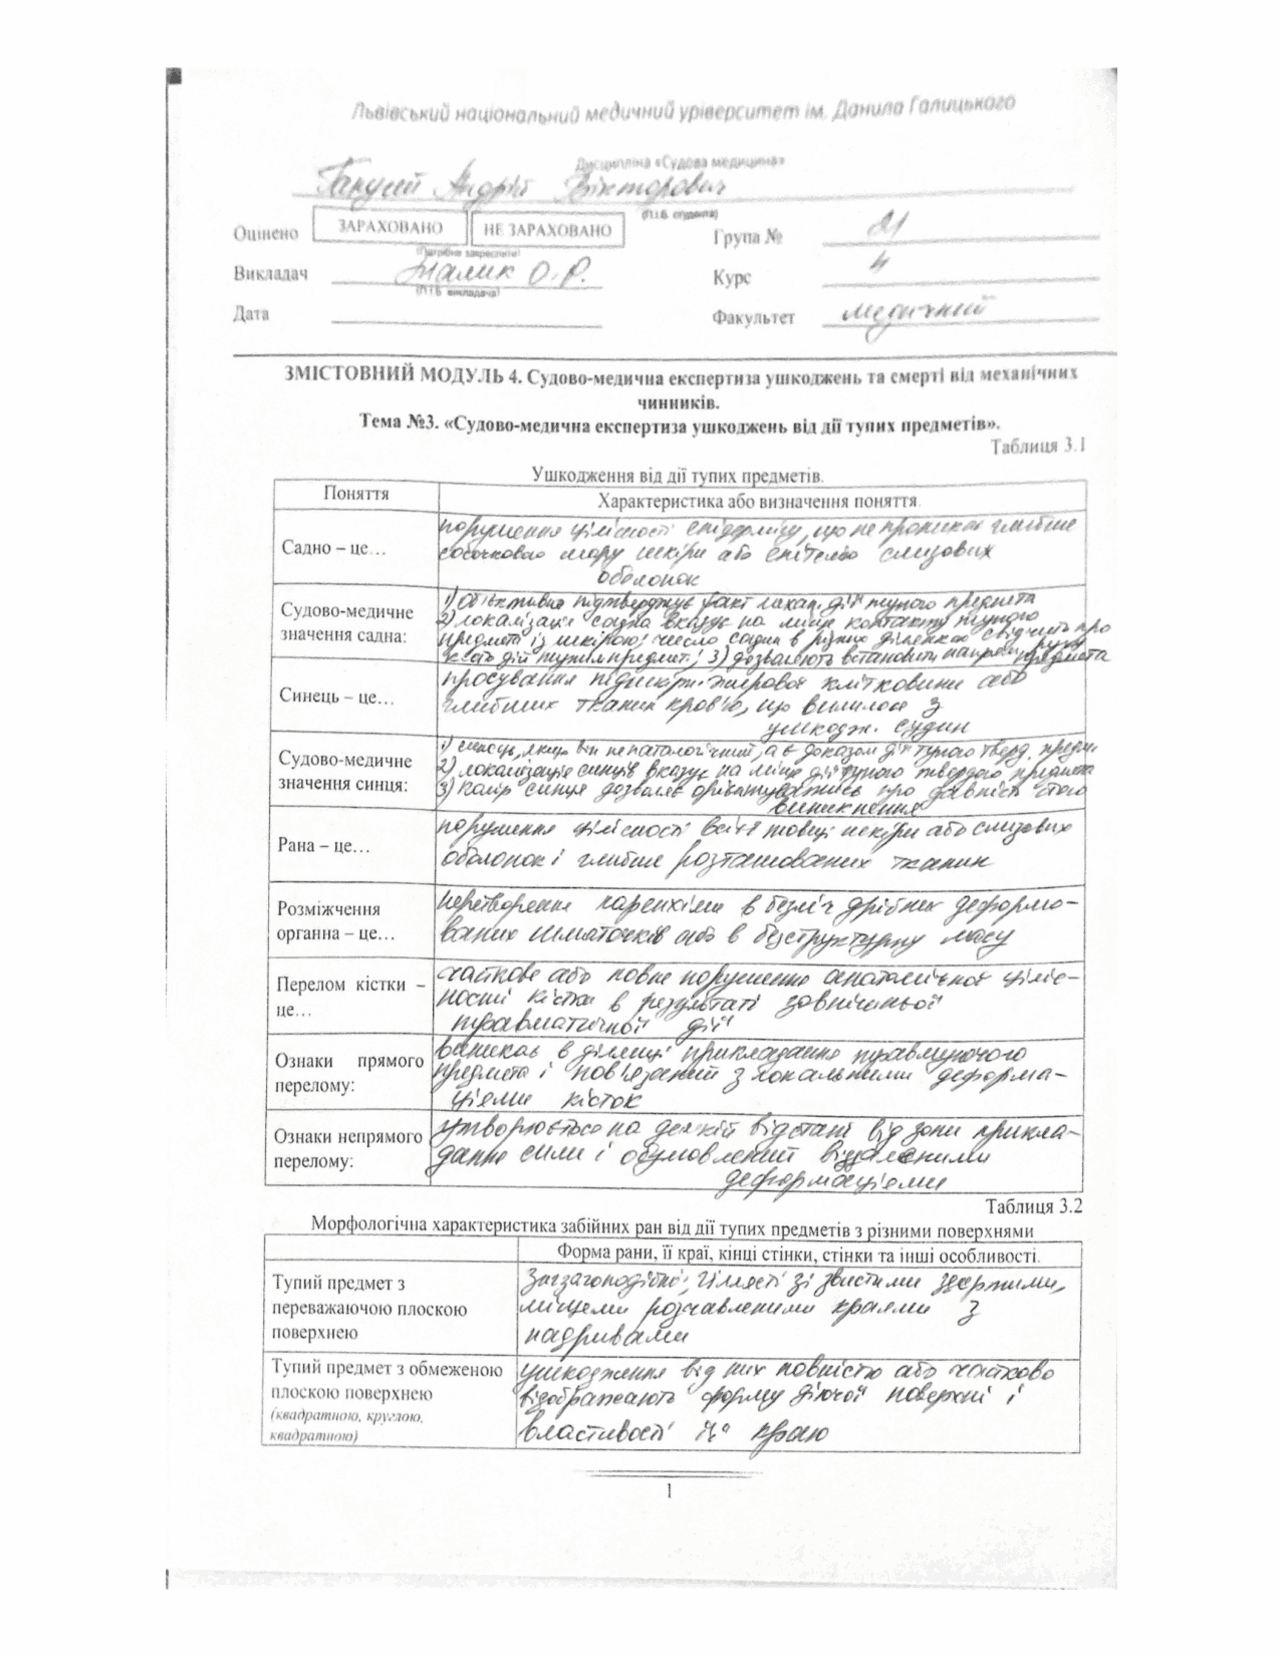 Львівський національний медичний уріверситет ім. Данила Галицького
Дисципліна «Судова медицина»
Андрій Вікторович
(П.І.Б. студента)
Оцінено ЗАРАХОВАНО НЕ ЗАРАХОВАНО Група № 21
(Потрібне закреслити)
Викладач Малик О.Р. Курс 4
(П.І.Б. викладача)
Дата Факультет медичний
ЗМІСТОВНИЙ МОДУЛЬ 4. Судово-медична експертиза ушкоджень та смерті від механічних
чинників.
Тема №3. «Судово-медична експертиза ушкоджень від дії тупих предметів».
Таблиця 3.1
Ушкодження від дії тупих предметів.
Поняття Характеристика або визначення поняття.
Садно – це…
порушення цілісності епідермісу, що не проникає глибше
сосочкового шару шкіри або епітелію слизових
оболонок
Судово-медичне
значення садна:
1) Об'єктивно підтверджує факт механ. дії тупого предмета
2) локалізація садна вказує на місце контакту тупого
предмета із шкірою; число саден в різних ділянках свідчить про
к-сть дій тупим предмет.; 3) дозволяють встановити напрям руху
предмета
Синець – це…
просування підшкірн. жирової клітковини або
глибших тканин кров'ю, що вилилася з
ушкодж. судин
Судово-медичне
значення синця:
1) синець, якщо він непатологічний, а є доказом дії тупого тверд. предм.
2) локалізація синців вказує на місце дії тупого твердого предмета
3) колір синця дозволяє орієнтуватись про давність його
виникнення
Рана – це…
порушення цілісності всієї товщі шкіри або слизових
оболонок і глибше розташованих тканин
Розміжчення
органна – це…
перетворення паренхіми в безліч дрібних деформо-
ваних шматочків або в безструктурну масу
Перелом кістки –
це…
часткове або повне порушення анатомічної ціліс-
ності кістки в результаті зовнішньої
травматичної дії
Ознаки прямого
перелому:
виникає в ділянці прикладання травмуючого
предмета і пов'язаний з локальними деформа-
ціями кісток
Ознаки непрямого
перелому:
утворюється на деякій відстані від зони прикла-
дання сили і обумовлений віддаленими
деформаціями
Таблиця 3.2
Морфологічна характеристика забійних ран від дії тупих предметів з різними поверхнями
Форма рани, її краї, кінці стінки, стінки та інші особливості.
Тупий предмет з
переважаючою плоскою
поверхнею
Зигзагоподібні, гіллясті зі звистими
місцями розчавленими краями з
надривами
Тупий предмет з обмеженою
плоскою поверхнею
(квадратною, круглою,
квадратною)
ушкодження від них повністю або частково
відображають форму діючої поверхні і
властивості її краю
1